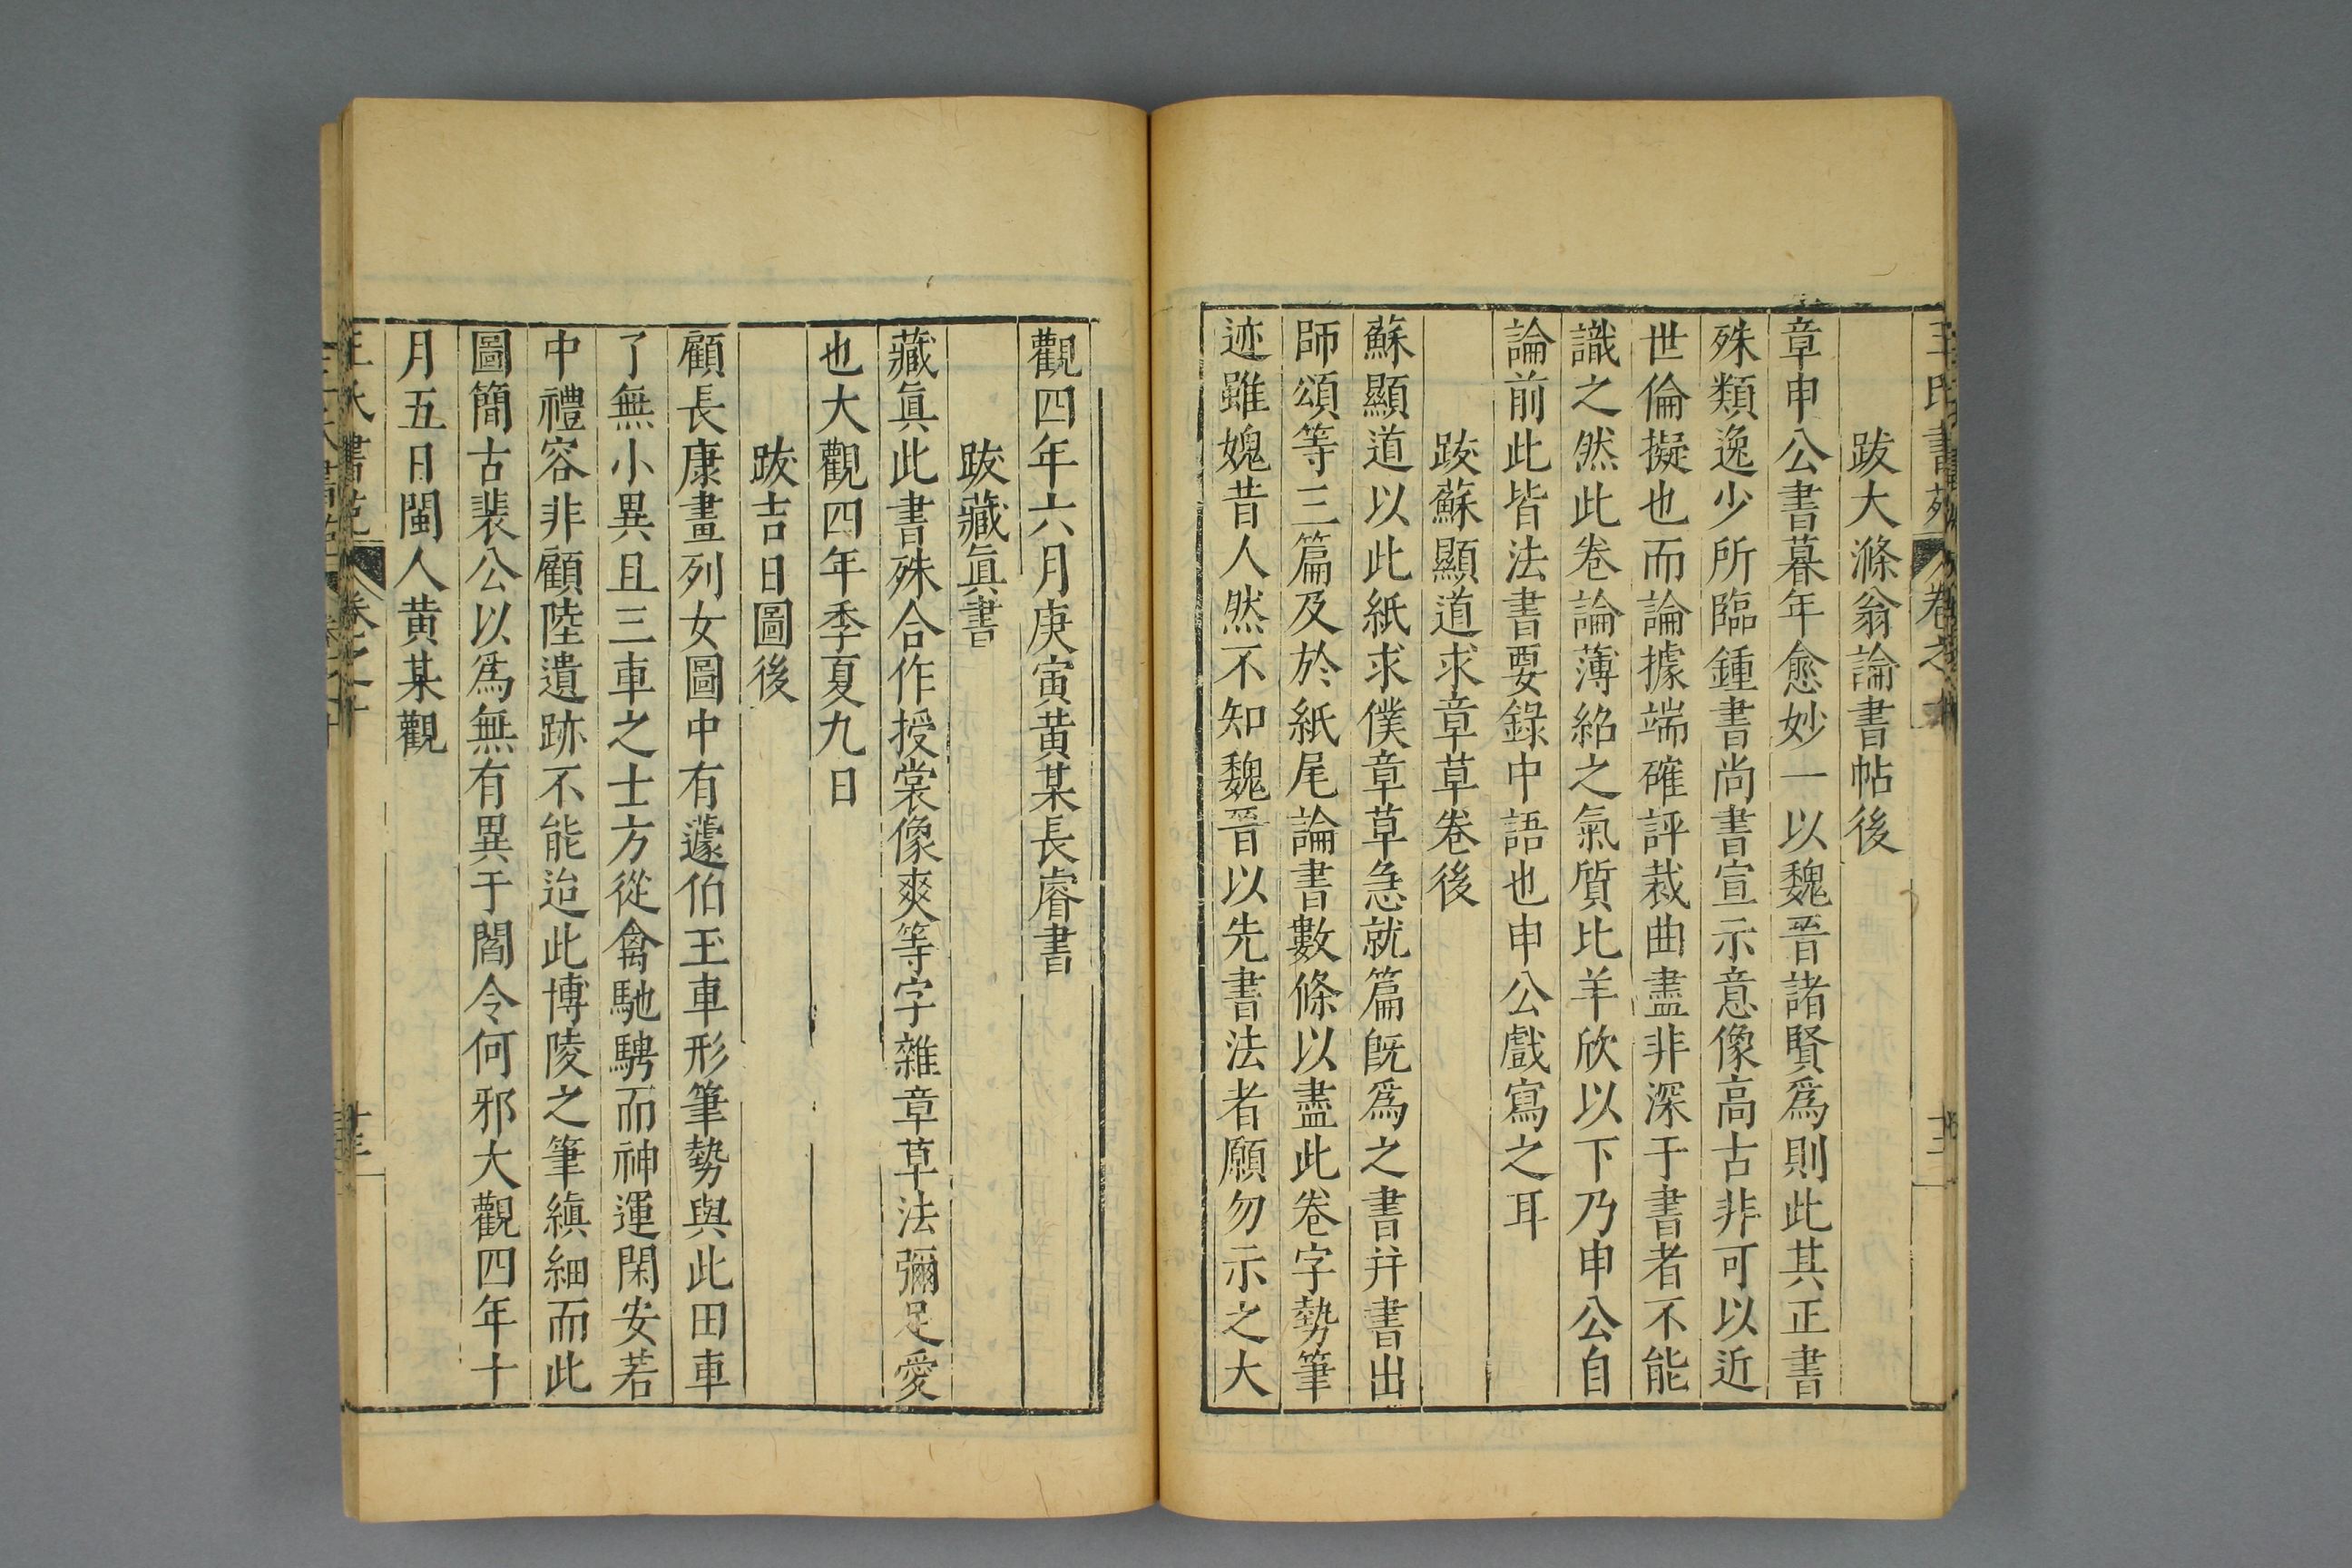 王氏書苑 卷之十
跋大滌翁論書帖後
章申公書暮年愈妙一以魏晉諸賢爲則此其正書
殊類逸少所臨鍾書尚書宣示意像高古非可以近
世倫擬也而論據端確評裁曲盡非深于書者不能
識之然此卷論薄紹之氣質比羊欣以下乃申公自
論前此皆法書要錄中語也申公戲寫之耳
跋蘇顯道求章草卷後
蘇顯道以此紙求僕章草急就篇旣爲之書并書出
師頌等三篇及於紙尾論書數條以盡此卷字勢筆
迹雖媿昔人然不知魏晉以先書法者願勿示之大
觀四年六月庚寅黃某長睿書
跋藏眞書
藏眞此書殊合作授裳像爽等字雜章草法彌足愛
也大觀四年季夏九日
跋吉日圖後
顧長康畫列女圖中有蘧伯玉車形筆勢與此田車
了無小異且三車之士方從禽馳騁而神運閑安若
中禮容非顧陸遺跡不能迨此博陵之筆縝細而此
圖簡古裴公以爲無有異于閻令何邪大觀四年十
月五日閩人黄某觀
王氏書苑 卷之十 十三